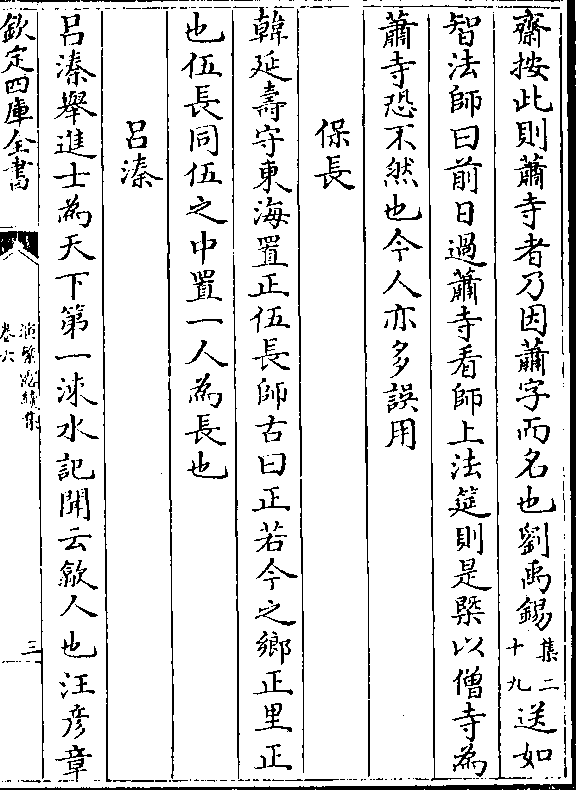 齋按此則蕭寺者乃因蕭字而名也劉禹錫集二十九送如
智法師曰前日過蕭寺看師上法筵則是槩以僧寺為
蕭寺恐不然也今人亦多誤用
保長
韓延壽守東海置正伍長師古曰正若今之鄉正里正
也伍長同伍之中置一人為長也
呂溱
呂溱舉進士為天下第一涑水記聞云歙人也汪彥章
欽定四庫全書
演繁露續集
卷六
三